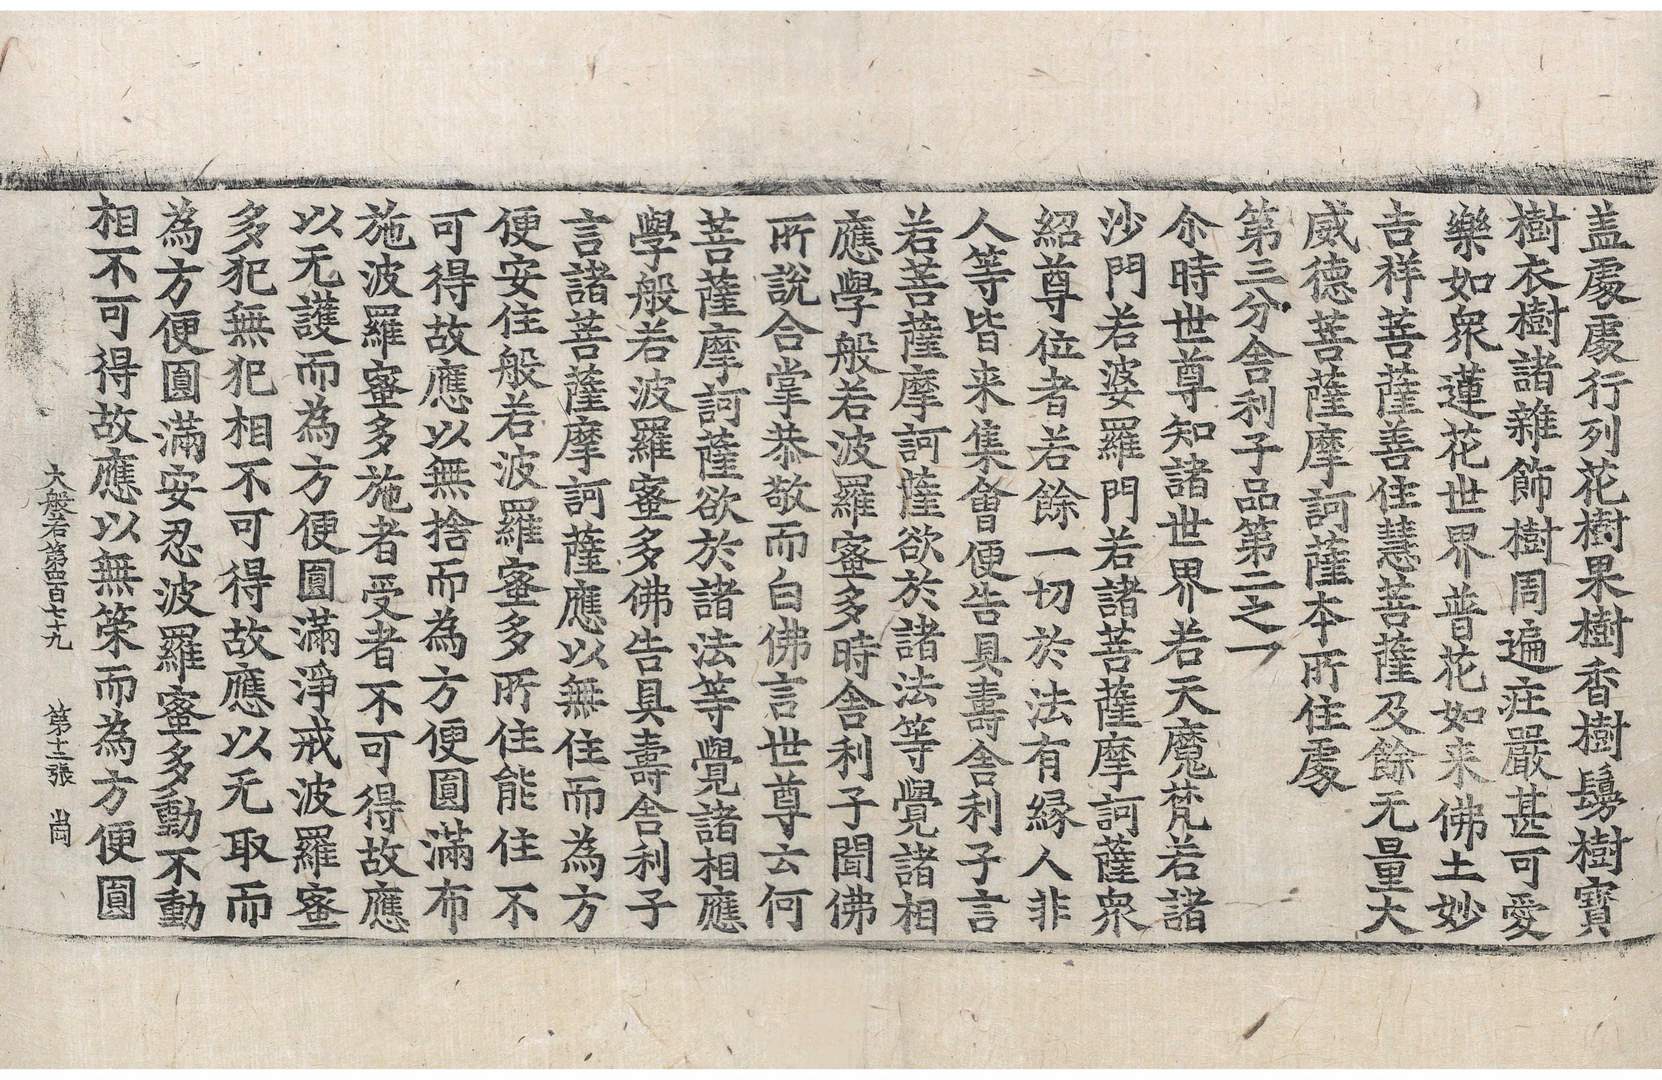 盖處處行列花樹果樹香樹鬘樹寶
樹衣樹諸雜飾樹周遍庄嚴甚可愛
樂如衆蓮花世界普花如来佛土妙
吉祥菩薩善住慧菩薩及餘无量大
威德菩薩摩訶薩本所住處
第三分舍利子品第二之一
尒時世尊知諸世界若天魔梵若諸
沙門若婆羅門若諸菩薩摩訶薩衆
紹尊位者若餘一切於法有緣人非
人等皆来集會便告具壽舍利子言
若菩薩摩訶薩欲於諸法等覺諸相
應學般若波羅蜜多時舍利子聞佛
所說合掌恭敬而白佛言世尊云何
菩薩摩訶薩欲於諸法等覺諸相應
學般若波羅蜜多佛告具壽舍利子
言諸菩薩摩訶薩應以無住而為方
便安住般若波羅蜜多所住能住不
可得故應以無捨而為方便圓滿布
施波羅蜜多施者受者不可得故應
以无護而為方便圓滿淨戒波羅蜜
多犯無犯相不可得故應以无取而
為方便圓滿安忍波羅蜜多動不動
相不可得故應以無策而為方便圓
大般若第四百七十九 第十二張 崗